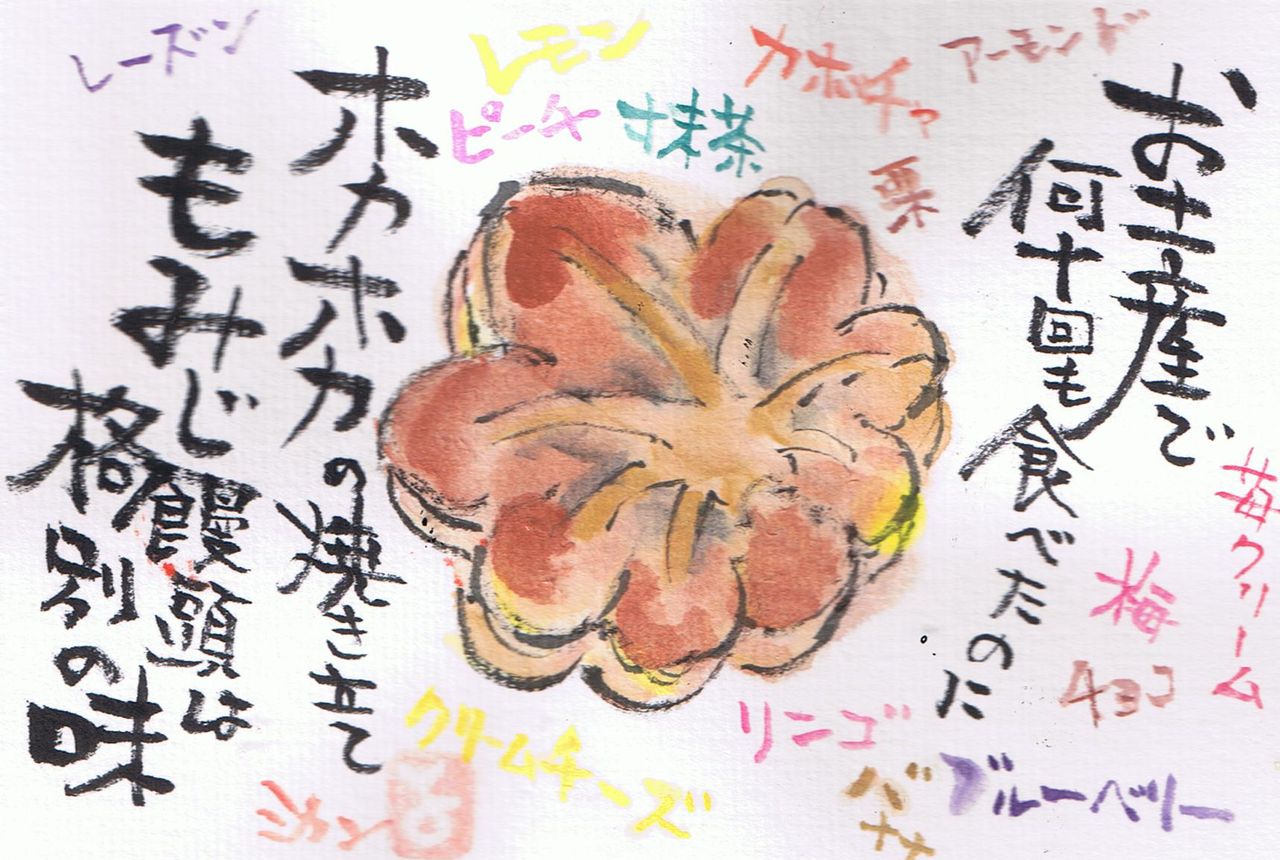 お土産で
何十回も
食べたのに
ホカホカの焼き立て
もみじ饅頭は
格別の味
アーモンド
カボッチャ
栗
レモン
抹茶
ピーチ
レーズン
苺クリーム
梅
チョコ
ブルーベリー
バナナ
リンゴ
クリームチーズ
ミカン